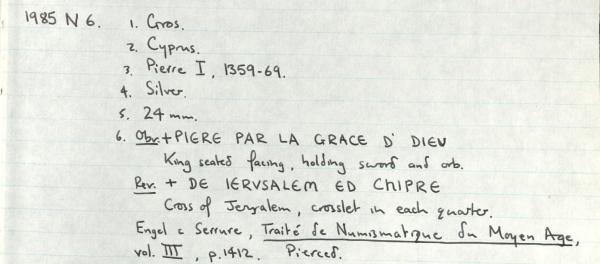 1985 N 6. 1. Gros.
2. Cyprus.
3. Pierre I, 1359-69.
4. Silver.
5. 24 mm.
6. Obv. + PIERE PAR LA GRACE D' DIEV
King seated facing, holding sword and orb.
Rev. + DE IERVSALEM ED CHIPRE
Cross of Jerusalem, crosslet in each quarter.
Engel & Serrure, Traité de Numismatique du Moyen Age,
vol. III, p.1412. Pierced.